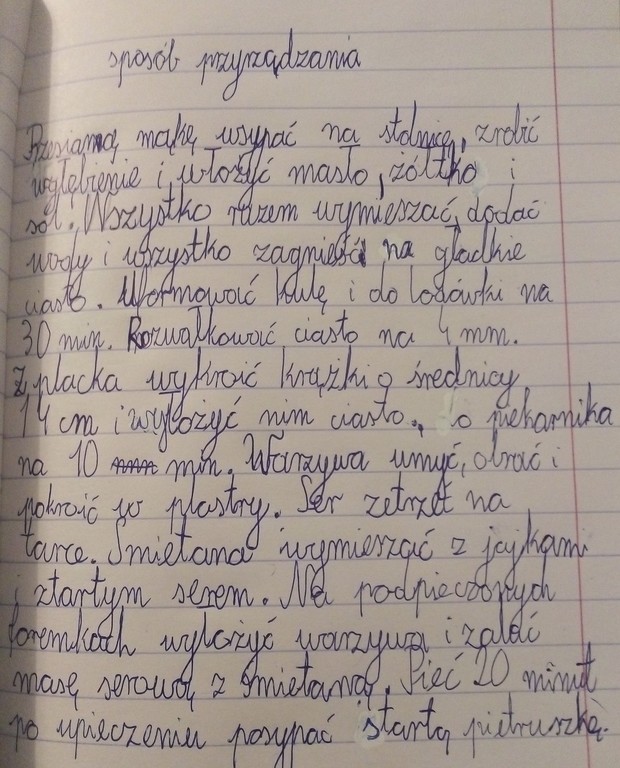 sposób przyrządzania
Przesianą mąkę wsypać na stolnicę, zrobić
wgłębienie i włożyć masło, żółtko i
sól. Wszystko razem wymieszać, dodać
wody i wszystko zagnieść na gładkie
ciasto. Uformować kulę i do lodówki na
30 min. Rozwałkować ciasto na 4 mm.
Z placka wykroić krążki o średnicy
14 cm i wyłożyć nim ciasto. Do piekarnika
na 10 min. Warzywa umyć, obrać i
pokroić w plastry. Ser zetrzeć na
tarce. Śmietana wymieszać z jajkami
i ztartym serem. Na podpieczonych
foremkach wyłożyć warzywa i zalać
masę serową z śmietaną. Pieć 20 minut
po upieczeniu posypać startą pietruszką.